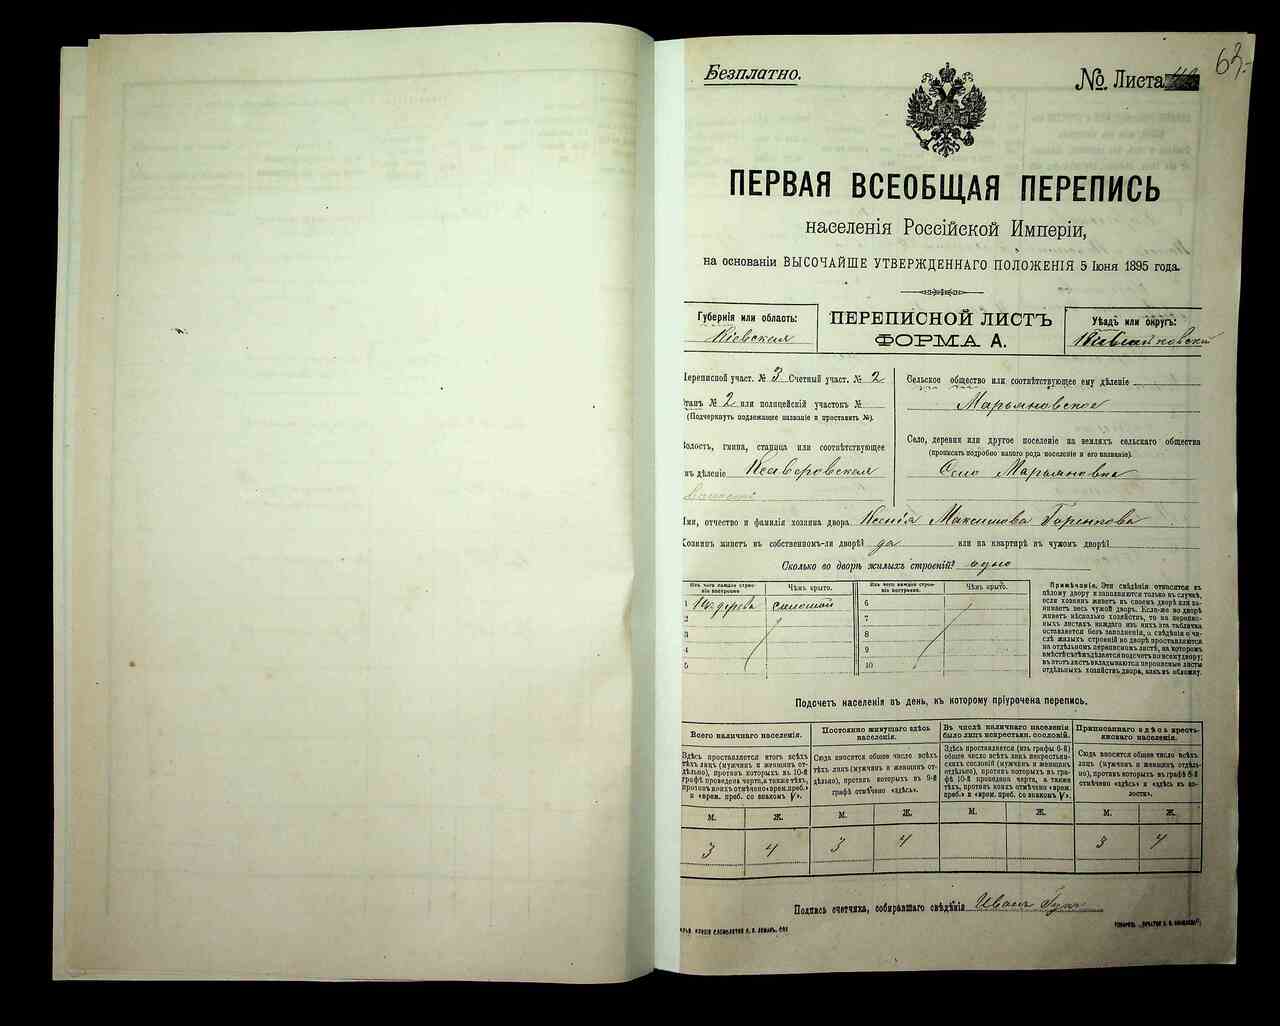 63.
Безплатно.
№ Листа
ПЕРВАЯ ВСЕОБЩАЯ ПЕРЕПИСЬ
населенія Россійской Имперіи,
на основаніи ВЫСОЧАЙШЕ УТВЕРЖДЕННАГО ПОЛОЖЕНІЯ 5 Іюня 1895 года.
Губернія или область:
Кіевская
ПЕРЕПИСНОЙ ЛИСТЪ
ФОРМА А.
Уѣздъ или округъ:
Переписной участ. № 3 Счетный участ. № 2
Станъ № 2 или полицейскій участокъ №
(Подчеркнуть подлежащее названіе и проставить №).
Волость, гмина, станица или соотвѣтствующее
имъ дѣленіе Ксаверовская
волость
Сельское общество или соотвѣтствующее ему дѣленіе
Марьяновское
Село, деревня или другое поселеніе на земляхъ сельскаго общества
(прописать подробно какого рода поселеніе и его названіе).
Село Марьяновка
Имя, отчество и фамилія хозяина двора Ксенія Максимова Горенкова
Хозяинъ живетъ въ собственномъ-ли дворѣ? да или на квартирѣ въ чужомъ дворѣ?
Сколько во дворѣ жилыхъ строеній? одно
Изъ чего каждое строеніе построено
Чѣмъ крыто.
Изъ чего каждое строеніе построено.
Чѣмъ крыто.
1 Изъ дерева соломой
2
3
4
5
6
7
8
9
10
Примѣчаніе. Эти свѣдѣнія относятся къ
цѣлому двору и заполняются только въ случаѣ,
если хозяинъ живетъ въ своемъ дворѣ или занимаетъ
весь чужой дворъ. Если-же во дворѣ
живетъ нѣсколько хозяйствъ, то на переписныхъ
листахъ каждаго изъ нихъ эта табличка
оставляется безъ заполненія, а свѣдѣнія о числѣ
жилыхъ строеній во дворѣ проставляются
на отдѣльномъ переписномъ листѣ, на которомъ
вмѣстѣ съ тѣмъ дѣлается подсчетъ по всему двору;
въ этотъ листъ вкладываются переписные листы
отдѣльныхъ хозяйствъ двора, какъ въ обложку.
Подсчетъ населенія въ день, къ которому пріурочена перепись.
Всего наличнаго населенія.
Здѣсь проставляется итогъ всѣхъ
тѣхъ лицъ (мужчинъ и женщинъ отдѣльно),
противъ которыхъ въ 10-й
графѣ проведена черта, а также тѣхъ,
противъ коихъ отмѣчено «врем. преб.»
и «врем. преб. со знакомъ V».
Постоянно живущаго здѣсь населенія.
Сюда вносится общее число всѣхъ
тѣхъ лицъ (мужчинъ и женщинъ отдѣльно),
противъ которыхъ въ 9-й
графѣ отмѣчено «здѣсь».
Въ числѣ наличнаго населенія
было лицъ некрестьян. сословій.
Здѣсь проставляется (изъ графы 6-й)
общее число всѣхъ лицъ некрестьянскихъ
сословій (мужчинъ и женщинъ
отдѣльно), противъ которыхъ въ графѣ
10-й проведена черта, а также
тѣхъ, противъ коихъ отмѣчено «врем.
преб.» и «врем. преб. со знакомъ V».
Приписаннаго здѣсь крестьянскаго населенія.
Сюда вносится общее число всѣхъ
лицъ (мужчинъ и женщинъ отдѣльно),
противъ которыхъ въ графѣ 8-й
отмѣчено «здѣсь» и «здѣсь въ волости».
М. Ж. М. Ж. М. Ж. М. Ж.
3 4 3 4 3 4
Подпись счетчика, собиравшаго свѣдѣнія Иванъ